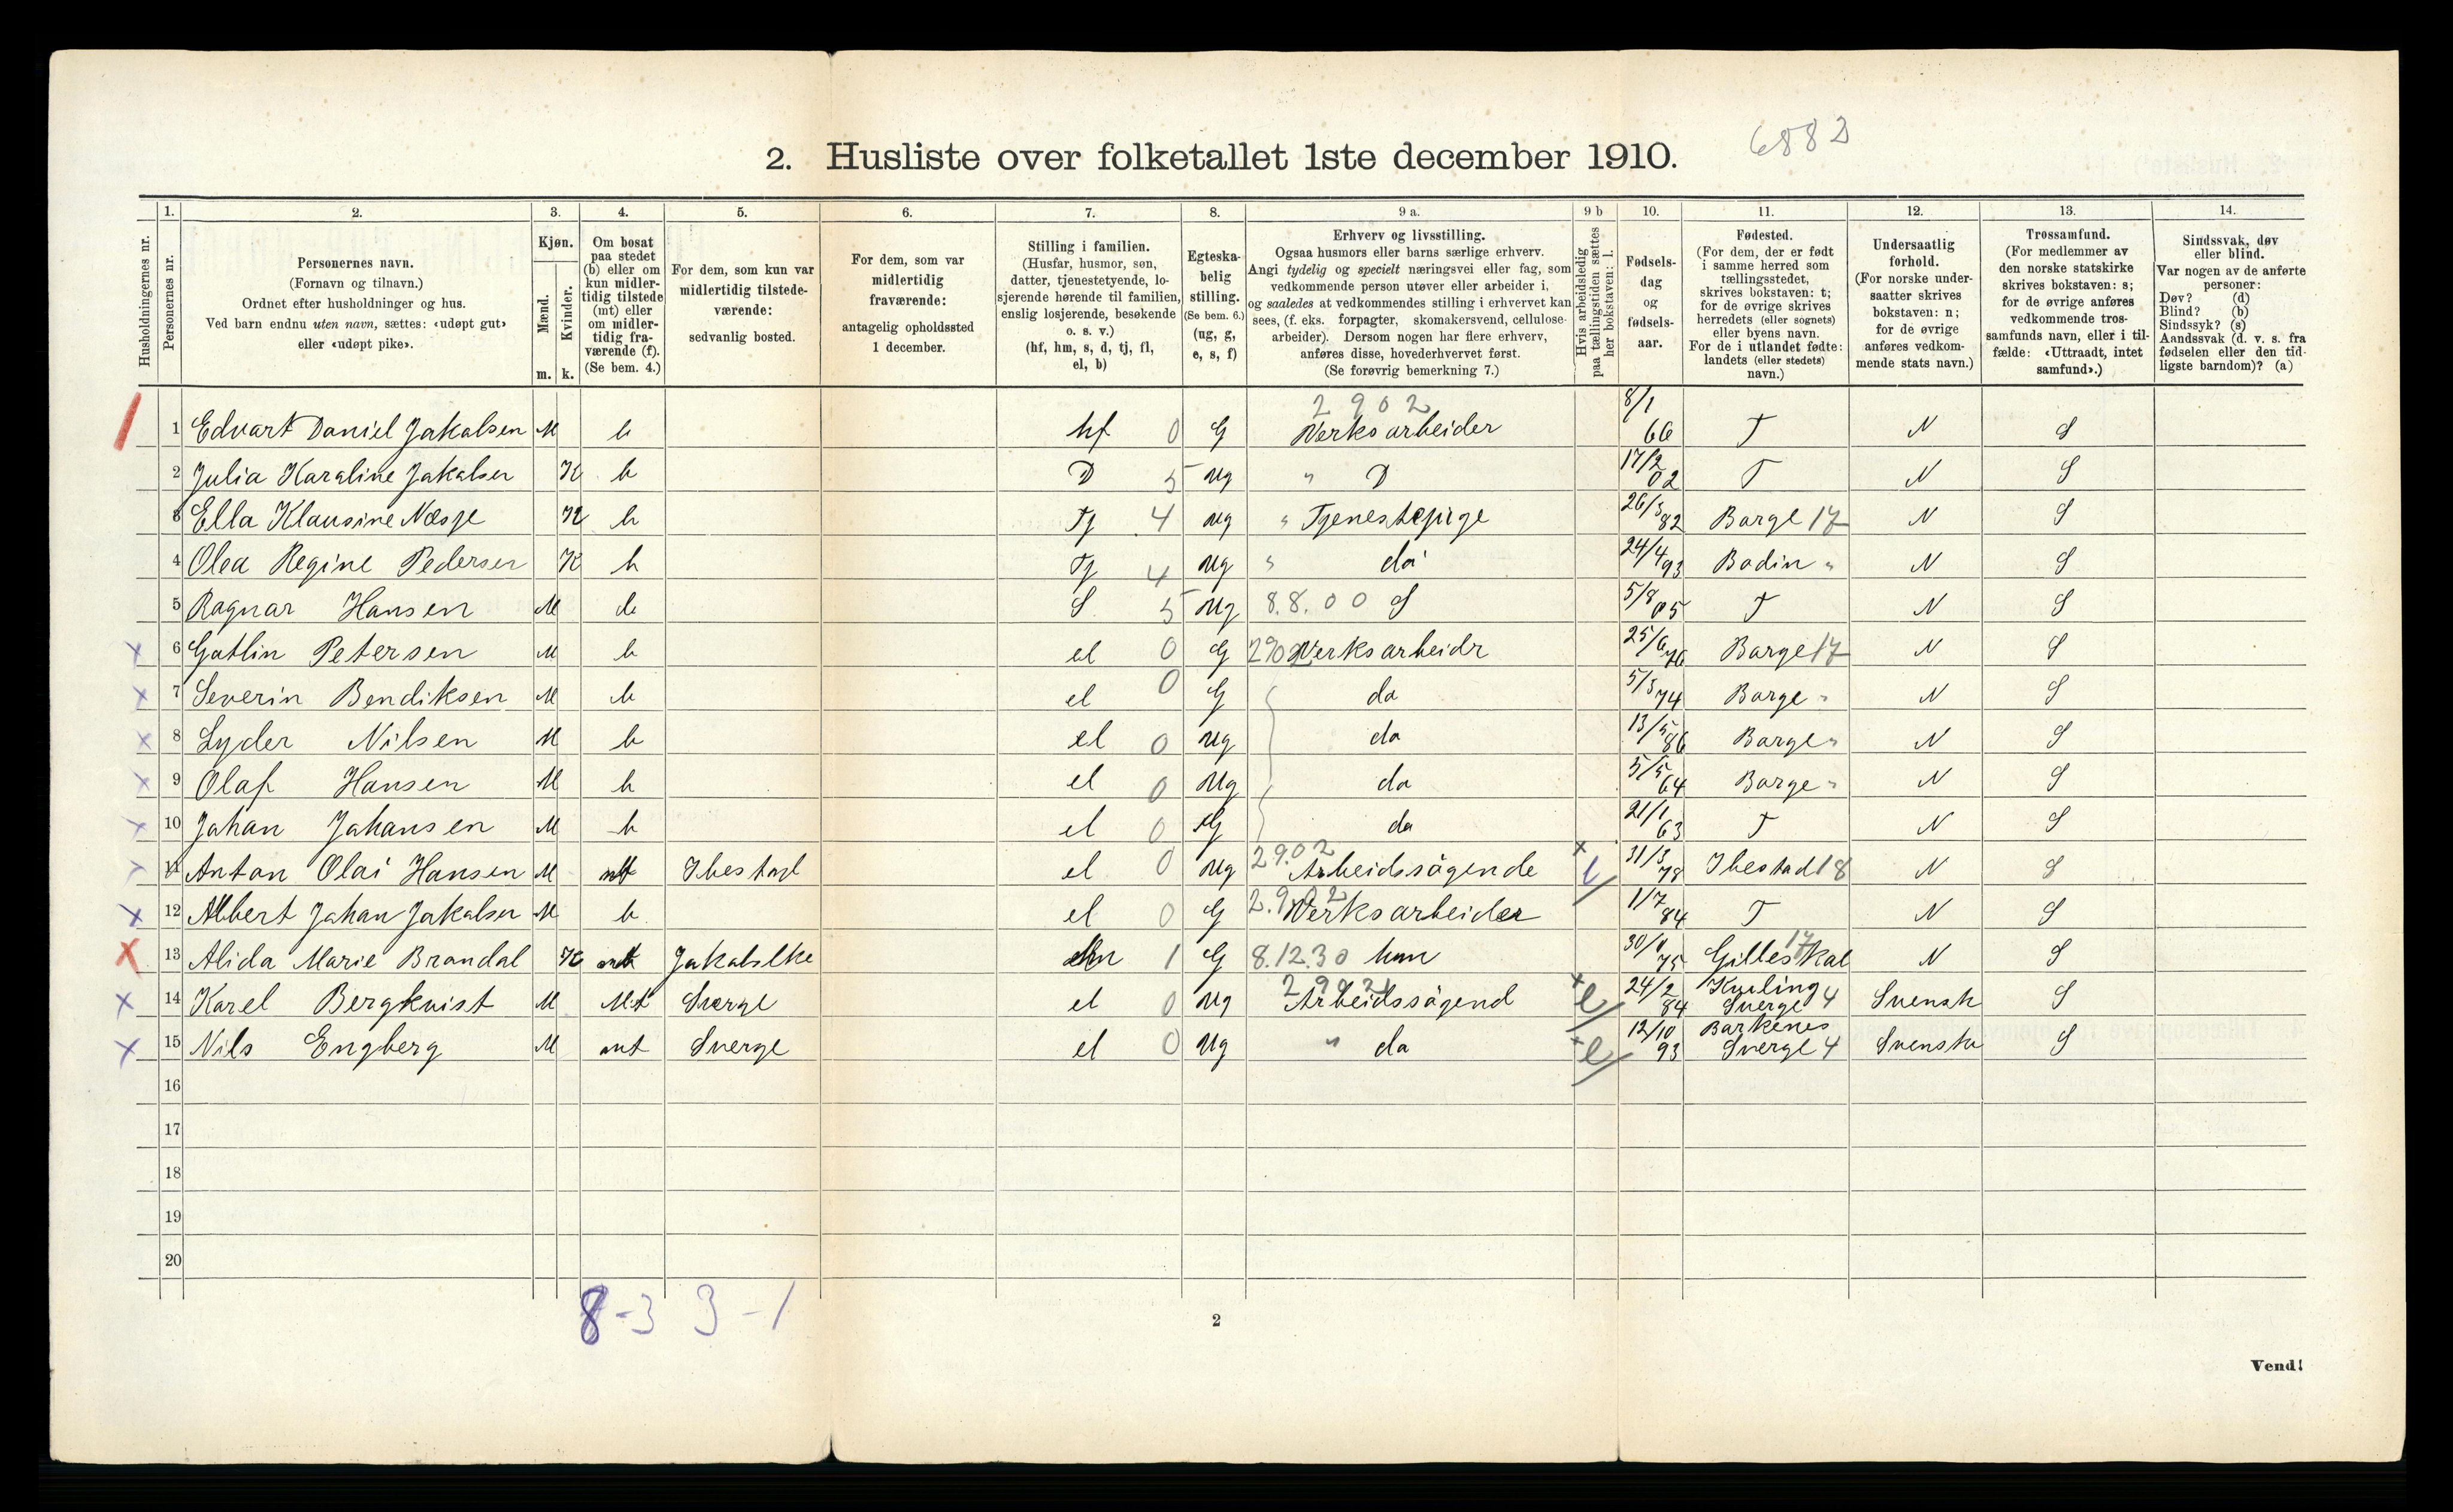 6882
2. Husliste over folketallet 1ste december 1910.
Husholdningernes nr.
1. Personernes nr.
2. Personernes navn.
(Fornavn og tilnavn.)
Ordnet efter husholdninger og hus.
Ved barn endnu uten navn, sættes: «udøpt gut»
eller «udøpt pike».
3. Kjøn.
Mænd. Kvinder.
m. k.
4. Om bosat
paa stedet
(b) eller om
kun midler-
tidig tilstede
(mt) eller
om midler-
tidig fra-
værende (f).
(Se bem. 4.)
5. For dem, som kun var
midlertidig tilstede-
værende:
sedvanlig bosted.
6. For dem, som var
midlertidig
fraværende:
antagelig opholdssted
1 december.
7. Stilling i familien.
(Husfar, husmor, søn,
datter, tjenestetyende, lo-
sjerende hørende til familien,
enslig losjerende, besøkende
o. s. v.)
(hf, hm, s, d, tj, fl,
el, b)
8. Egteska-
belig
stilling.
(Se bem. 6.)
(ug, g,
e, s, f)
9 a. Erhverv og livsstilling.
Ogsaa husmors eller barns særlige erhverv.
Angi tydelig og specielt næringsvei eller fag, som
vedkommende person utøver eller arbeider i,
og saaledes at vedkommendes stilling i erhvervet kan
sees, (f. eks. forpagter, skomakersvend, cellulose-
arbeider). Dersom nogen har flere erhverv,
anføres disse, hovederhvervet først.
(Se forøvrig bemerkning 7.)
9 b Hvis arbeidsledig
paa tællingstiden sættes
her bokstaven: l.
10. Fødsels-
dag
og
fødsels-
aar.
11. Fødested.
(For dem, der er født
i samme herred som
tællingsstedet,
skrives bokstaven: t;
for de øvrige skrives
herredets (eller sognets)
eller byens navn.
For de i utlandet fødte:
landets (eller stedets)
navn.)
12. Undersaatlig
forhold.
(For norske under-
saatter skrives
bokstaven: n;
for de øvrige
anføres vedkom-
mende stats navn.)
13. Trossamfund.
(For medlemmer av
den norske statskirke
skrives bokstaven: s;
for de øvrige anføres
vedkommende tros-
samfunds navn, eller i til-
fælde: «Uttraadt, intet
samfund».)
14. Sindssvak, døv
eller blind.
Var nogen av de anførte
personer:
Døv? (d)
Blind? (b)
Sindssyk? (s)
Aandssvak (d. v. s. fra
fødselen eller den tid-
ligste barndom)? (a)
2902
1 Edvart Daniel Jakalsen M b hf 0 G Verksarbeider 8/1 66 T N S
2 Julia Karaline Jakalsen K b D 5 ug " D 17/2 02 T N S
3 Ella Klausine Næsje K b Tj 4 ug " Tjenestepige 26/3 82 Barge 17 N S
4 Olea Regine Pedersen K b Tj 4 ug " da 24/4 93 Badin " N S
5 Ragnar Hansen M b S 5 ug 8.8.00 S 5/8 05 T N S
x 6 Gatlin Petersen M b el 0 G 2902 Verksarbeidr 25/6 76 Barge 17 N S
x 7 Severin Bendiksen M b el 0 G da 5/3 74 Barge " N S
x 8 Lyder Nilsen M b el 0 ug da 13/5 86 Barge " N S
x 9 Olaf Hansen M b el 0 ug da 5/5 64 Barge " N S
x 10 Jahan Jahansen M b el 0 G da 21/1 63 T N S
x 11 Antan Olai Hansen M mt Ibestad el 0 ug 2902 Arbeidssögende x l 31/3 78 Ibestad 18 N S
x 12 Albert Jahan Jakalsen M b el 0 G 2.902 Verksarbeider 1/7 84 T N S
x 13 Alida Marie Brandal K mt Jakabslke 1 G 8.12.30 hm 75 Gilleskal 17 N S
x 14 Karel Bergkvist M Mt Sverge el 0 ug 2902 Arbeidssögend x l 24/2 84 Sverge 4 Svensk S
x 15 Nils Engberg M mt Sverge el 0 ug " da x l 12/10 93 Barkenes Sverge 4 Svensk S
16
17
18
19
20
8-3 3-1
2
Vend!